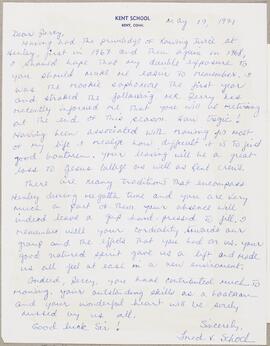 KENT SCHOOL
KENT, CONN.
May 19, 1971
Dear Percy,
Having had the privilege of rowing twice at
Henley, first in 1967 and then again in 1968,
I should hope that my double exposure to
you should make me easier to remember. I
was the rookie sophomore the first year
and stroked the following. Mr. Perry has
recently informed me that you will be retiring
at the end of this season. How tragic!
Having been associated with rowing for most
of my life I realize how difficult it is to find
good boatmen. Your leaving will be a great
loss to Jesus College as well as Kent crews.
There are many traditions that encompass
Henley during regatta time and you are very
much a part of them. Your absence will
indeed leave a gap hard-pressed to fill. I
remember well your cordiality towards our
group and the effects that you had on us. Your
good natured spirit gave us a lift and made
us all feel at ease in a new environment.
Indeed, Percy, you have contributed much to
rowing, your outstanding skills as a boatman
and your wonderful heart will be sorely
missed by us all.
Good luck Sir!
Sincerely,
Fred V. Schoch